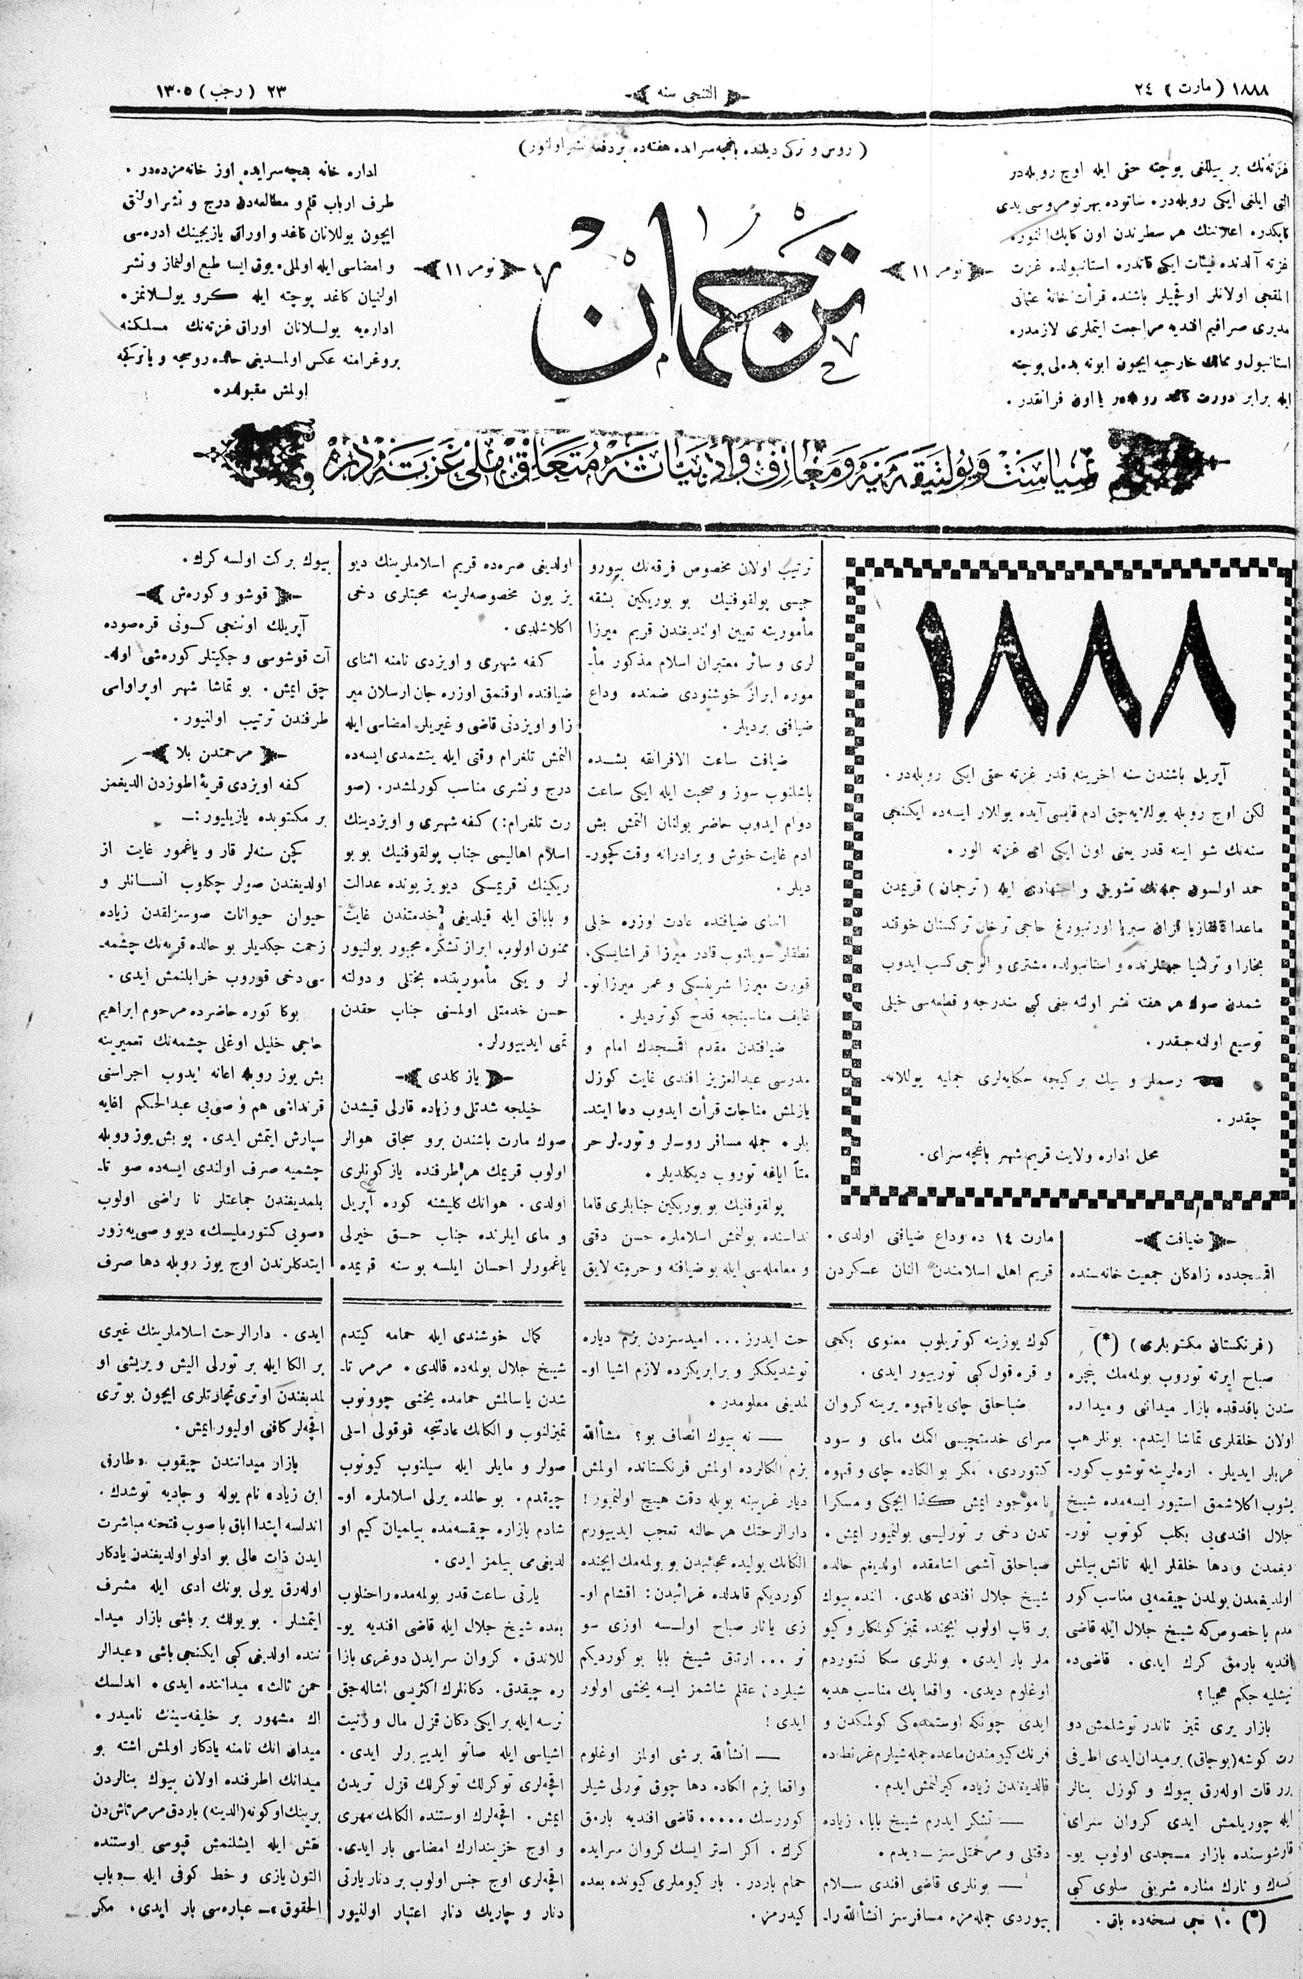 ١٨٨٨ (مارت) ٢٤
التنجی سنه
٢٣ (رجب) ١٣٠٥
(روس و ترکی دیلنده باغچه سرایده هفته‌ده بر دفعه نشر اولنور)
غزته‌نك بر ییللغی پوچته حقی ایله اوچ روبله‌در
التی ایلغی ایکی روبله‌در. صاتوده بهر نومروسی یدی
کاپکدر. اعلاننك هر سطرندن اون کاپك النور.
مدیری صرافیم افندیه مراجعت ایتملری لازمدر.
استانبول و ممالك خارجیه ایچون ابونه بدلی پوچته
نومر ١١
ترجمان
نومر ١١
اداره خانه باغچه سرایده اوز خانه مزده‌در.
طرف ارباب قلم و مطالعه‌دن درج و نشر اولنمق
ایچون یوللانان کاغد و اوراق یازیجینك ادره‌سی
و امضاسی ایله اولملی. یوق ایسا طبع اولنماز و نشر
اولنیان کاغد پوچته ایله کرو یوللانمز.
اداره‌یه یوللانان اوراق غزته‌نك مسلکنه
پروغرامنه عکس اولمدیغی حالده روسجه و یا ترکیجه
اولمش مقبولدر.
سیاست و پولتیقه‌یه و معارف و ادبیاتنه متعلق ملی غزته‌در
١٨٨٨
آپریل باشندن سنه اخرینه قدر غزته حقی ایکی روبله‌در.
لکن اوچ روبله یوللایه‌جق ادم قایسی آیده یوللار ایسه‌ده ایکنجی
سنه‌نك شو اینه قدر یعنی اون ایکی اهی غزته الور.
حمد اولسون جمله‌نك تشویق و اجتهادی ایله (ترجمان) قریمدن
ماعدا قافقازیا قزان سبریا اورنبورغ حاجی ترخان ترکستان خوقند
بخارا و ترکیا جهتلرنده و استانبولده مشتری و الوجی کسب ایدوب
شمدن صوڭ هر هفته نشر اولنه‌جغی کبی مندرجه و قطعه‌سی خیلی
توسیع اولنه‌جقدر.
رسملر و بیك بر کیجه حکایه‌لری جمله‌یه یوللانه‌
جقدر.
محل اداره ولایت قریم شهر باغچه سرای.
ضیافت
اقمسجدده زادکان جمعیت خانه‌سنده
مارت ١٤ ده وداع ضیافتی اولدی.
قریم اهل اسلامندن النان عسکردن
ترتیب اولان مخصوص فرقه‌نك بیورو
جیسی پولقوفنیك بو بوریکین بشقه
مأموریته تعیین اولندیغندن قریم میرزا
لری و سائر معتبران اسلام مذکور مأ
موره ابراز خوشنودی ضمنده وداع
ضیافتی بردیلر.
ضیافت ساعت الافرانقه بشده
باشلانوب سوز و صحبت ایله ایکی ساعت
دوام ایدوب حاضر بولنان التمش بش
ادم غایت خوش و برادرانه وقت کچور
دیلر.
اثنای ضیافتده عادت اوزره خیلی
نطقلر سویلنوب قادر میرزا قراشایسکی،
قورت میرزا شرینسکی و عمر میرزا نو
غایف مناسبنجه قدح کوتردیلر.
ضیافتدن مقدم اقمسجدك امام و
مدرسی عبدالعزیز افندی غایت کوزل
یازلمش مناجات قرأت ایدوب دعا ایتد
یلر. جمله مسافر روسلر و تورلر حر
متاً ایاغه توروب دیکلدیلر.
پولقوفنیك بو بوریکین جنابلری قاما
نداسنده بولنمش اسلاملره حسن دقتی
و معامله‌سی ایله بو ضیافته و حرمته لایق
اولدیغی صره‌ده قریم اسلاملرینك دیو
یزیون مخصوصه‌لرینه محبتلری دخی
اکلاشلدی.
کفه شهری و اویزدی نامنه اثنای
ضیافتده اوقنمق اوزره جان ارسلان میر
زا و اویزدنی قاضی و غیریلر امضاسی ایله
التمش تلغرام وقتی ایله یتشمدی ایسه‌ده
درج و نشری مناسب کورلمشدر. (صو
رت تلغرام:) کفه شهری و اویزدینك
اسلام اهالیسی جناب پولقوفنیك بو بو
ریکینك قریمسکی دیویزیونده عدالت
و بابالق ایله قیلدیغی خدمتندن غایت
ممنون اولوب ابراز تشکره مجبور بولنیور
لر و یکی مأموریتنده بختلی و دولته
حسن خدمتلی اولمسنی جناب حقدن
تمنی ایدییورلر.
یاز کلدی
خیلجه شدتلی و زیاده قارلی قیشدن
صوك مارت باشندن برو سجاق هوالر
اولوب قریمك هر طرفنده یاز کونلری
اولدی. هوانك کلیشنه کوره آپریل
و مای ایلرنده جناب حق خیرلی
یاغمورلر احسان ایلسه بو سنه قریمده
بیوك برکت اولسه کرك.
قوشو و کوره‌ش
آپریلك اوننجی کونی قره‌صوده
آت قوشوسی و جکیتلر کوره‌شی اوله
جق ایمش. بو تماشا شهر اوپراواسی
طرفندن ترتیب اولنیور.
مرحمتدن بلا
کفه اویزدی قریۀ اطوزدن الدیغمز
بر مکتوبده یازیلیور:—
کچن سنه‌لر قار و یاغمور غایت از
اولدیغندن صولر چکلوب انسانلر و
حیوان حیوانات صوسزلقدن زیاده
زحمت چکدیلر بو حالده قریه‌نك چشمه
سی دخی قوروب خرابلنمش ایدی.
بوکا کوره حاضرده مرحوم ابراهیم
حاجی خلیل اوغلی چشمه‌نك تعمیرینه
بش یوز روبله اعانه ایدوب اجراسنی
قرنداشی هم وصی‌یی عبدالحکیم اغایه
سپارش ایتمش ایدی. بو بش یوز روبله
چشمیه صرف اولندی ایسه‌ده صو تا
بلمدیغندن جماعتلر نا راضی اولوب
«صویی کتورملیسك» دیو وصی‌یه زور
ایتدکلرندن اوچ یوز روبله دها صرف
(فرنکستان مکتوبلری) (*)
صباح ایرته توروب بولمه‌مك پنجره
سندن باقدقده بازار میدانی و میدانده
اولان خلقلری تماشا ایتدم. بونلر هپ
عربلر ایدیلر. اره‌لرینه توشوب کور
یشوب اکلاشمق استیور ایسه‌مده شیخ
جلال افندی‌یی بکلب کوتوب تور
دیغمدن و دها خلقلر ایله تانش بیلش
اولدیغمدن بولمدن چیقمه‌یی مناسب کور
مدم با خصوص که شیخ جلال ایله قاضی
افندیه بارمق کرك ایدی. قاضی‌ده
نیشلیه جکم عجبا؟
بازار یری تمیز تاشدر توشلمش دو
رت کوشه (بوجاق) بر میدان ایدی اطرفی
برر قات اوله‌رق بیوك و کوزل بنالر
ایله چوریلمش ایدی کروان سرای
قارشوسنده بازار مسجدی اولوب یو
کسك و نازك مناره شریفی سلوی کبی
(*) ١٠ نجی نسخه‌ده باق.
کوك یوزینه کوتریلوب معنوی بکجی
و قره‌قول کبی توریبور ایدی.
ضباحلق چای یا قهوه یرینه کروان
سرای خدمتچیسی اکمك مای و سود
کتوردی، مکر بو الکاده چای و قهوه
نا موجود ایمش کذا ایچکی و مسکرا
تدن دخی بر تورلیسی بولنمیور ایمش.
صباحلق آشمی اشامقده اولدیغم حالده
شیخ جلال افندی کلدی. النده بیوك
بر قاپ اولوب ایچنده تمیز کولمکلر و کیو
ملر بار ایدی. بونلری سکا کتوردم
اوغلوم دیدی. واقعا پك مناسب هدیه
ایدی چونکه اوستمده‌کی کولمکدن و
فرنك کیومندن ماعده جمله شیلرم غرناطه‌ده
قالدیغندن زیاده کیرلنمش ایدم.
— تشکر ایدرم شیخ بابا، زیاده
دقتلی و مرحمتلی سز — دیدم.
— بونلری قاضی افندی سلام
بیوردی جمله‌مزه مسافرسز انشأالله را
حت ایدرز... امیدسزدن بزم دیاره
توشدیککز و برابریکزده لازم اشیا او
لمدیغی معلومدر.
— نه بیوك انصاف بو؟ مشأالله
بزم الکالرده اولمش فرنکستانده اولمش
دیار غریبنه بویله دقت هیچ اولنمیور!
دارالرحتك هر حالنه تعجب ایدییورم
الکانك یولیده عجائبدن و بولمه‌مك ایچنده
کوردیکم قاندلده غرائبدن: اقشام او
زی یانار صباح اولسه اوزی سو
نر... ارتق شیخ بابا بو کوردیکم
شیلردن عقلم شاشمز ایسه یخشی اولور
ایدی!
— انشأالله برشی اولمز اوغلوم
واقعا بزم الکاده دها چوق تورلی شیلر
کوررسك..... قاضی افندیه بارمق
کرك. اکر استر ایسك کروان سرایده
حمام باردر. بار کیوملری کیونده بعده
کیدرمز.
کمال خوشندی ایله حمامه کیتدم
شیخ جلال بولمه‌ده قالدی. مرمر تا
شدن یاسالمش حمامده یخشی چوونوب
تمیزلنوب و الکانك عادتنجه قوقولی اسلی
صولر و مایلر ایله سیلنوب کیونوب
چیقدم. بو حالمده یرلی اسلاملره او
شادم بازاره چیقسه‌مده بیلمیان کیم او
لدیغی می بیلمز ایدی.
یارتی ساعت قدر بولمه‌مده راحتلنوب
بعده شیخ جلال ایله قاضی افندیه یو
للاندق. کروان سرایدن دوغری بازا
ره چیقدق. دکانلرك اکثریسی اشاله‌جق
نرسه ایله بر ایکی دکان قزل مال و زینت
اشیاسی ایله صاتو ایدییورلر ایدی.
اقچه‌لری توکرلك توکرلك قزل تریدن
ایمش. اقچه‌لرك اوستنده الکانك مهری
و اوچ خزیندارك امضاسی بار ایدی.
اقچه‌لری اوچ جنس اولوب بر دنار یارتی
دنار و چاریك دنار اعتبار اولنیور
ایدی. دارالرحت اسلاملرینك غیری
بر الکا ایله بر تورلی الیش و یریشی او
لمدیغندن اوتری تجارتلری ایچون بو تری
اقچه‌لر کافی اولیور ایمش.
بازار میدانندن چیقوب «طارق
ابن زیاد» نام یوله و جادیه توشدك.
اندلسه ایتدا ایاق باصوب فتحنه مباشرت
ایدن ذات عالی بو ادلو اولدیغندن یادکار
اوله‌رق یولی بونك ادی ایله مشرف
ایتمشلر. بو یولك بر باشی بازار میدا
ننده اولدیغی کبی ایکنجی باشی «عبدالر
حمن ثالث» میداننده ایدی. اندلسك
اك مشهور بر خلیفه‌سینك نامیدر.
میدان انك نامنه یادکار اولمش اشته بو
میدانك اطرفنده اولان بیوك بنالردن
برینك اوکونه (الدینه) باردق مرمر تاش‌دن
نقش ایله ایشلنمش قپوسی اوستنده
التون یازی و خط کوفی ایله — «باب
الحقوق» — عباره‌سی بار ایدی. مکر